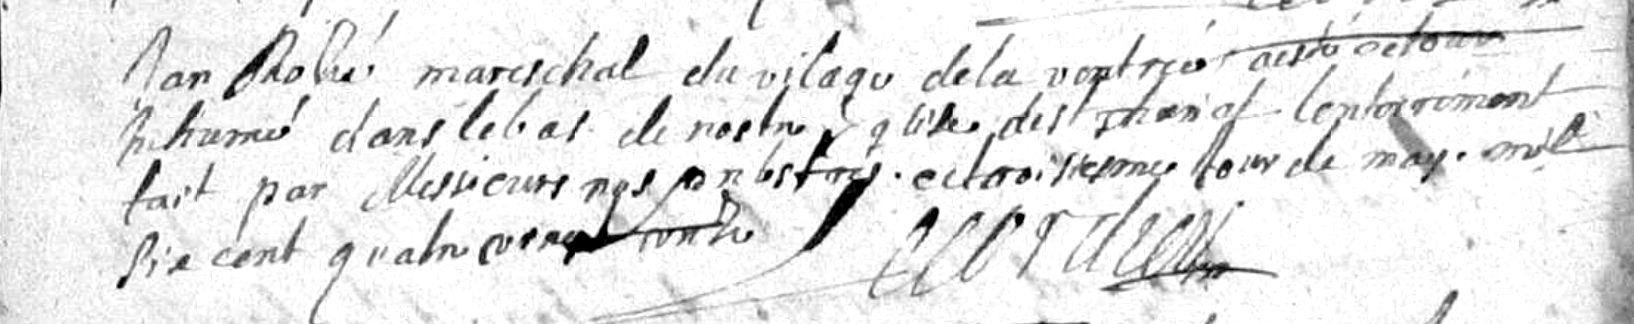 Jan Robié mareschal du vilage de la vontrée a esté ce iour
Inhumé dans le bas de nostre eglise des lenterrement
fait par Messieurs nos prestres. ce troisiesme iour de may. mil
Six cent quatre vingt onze